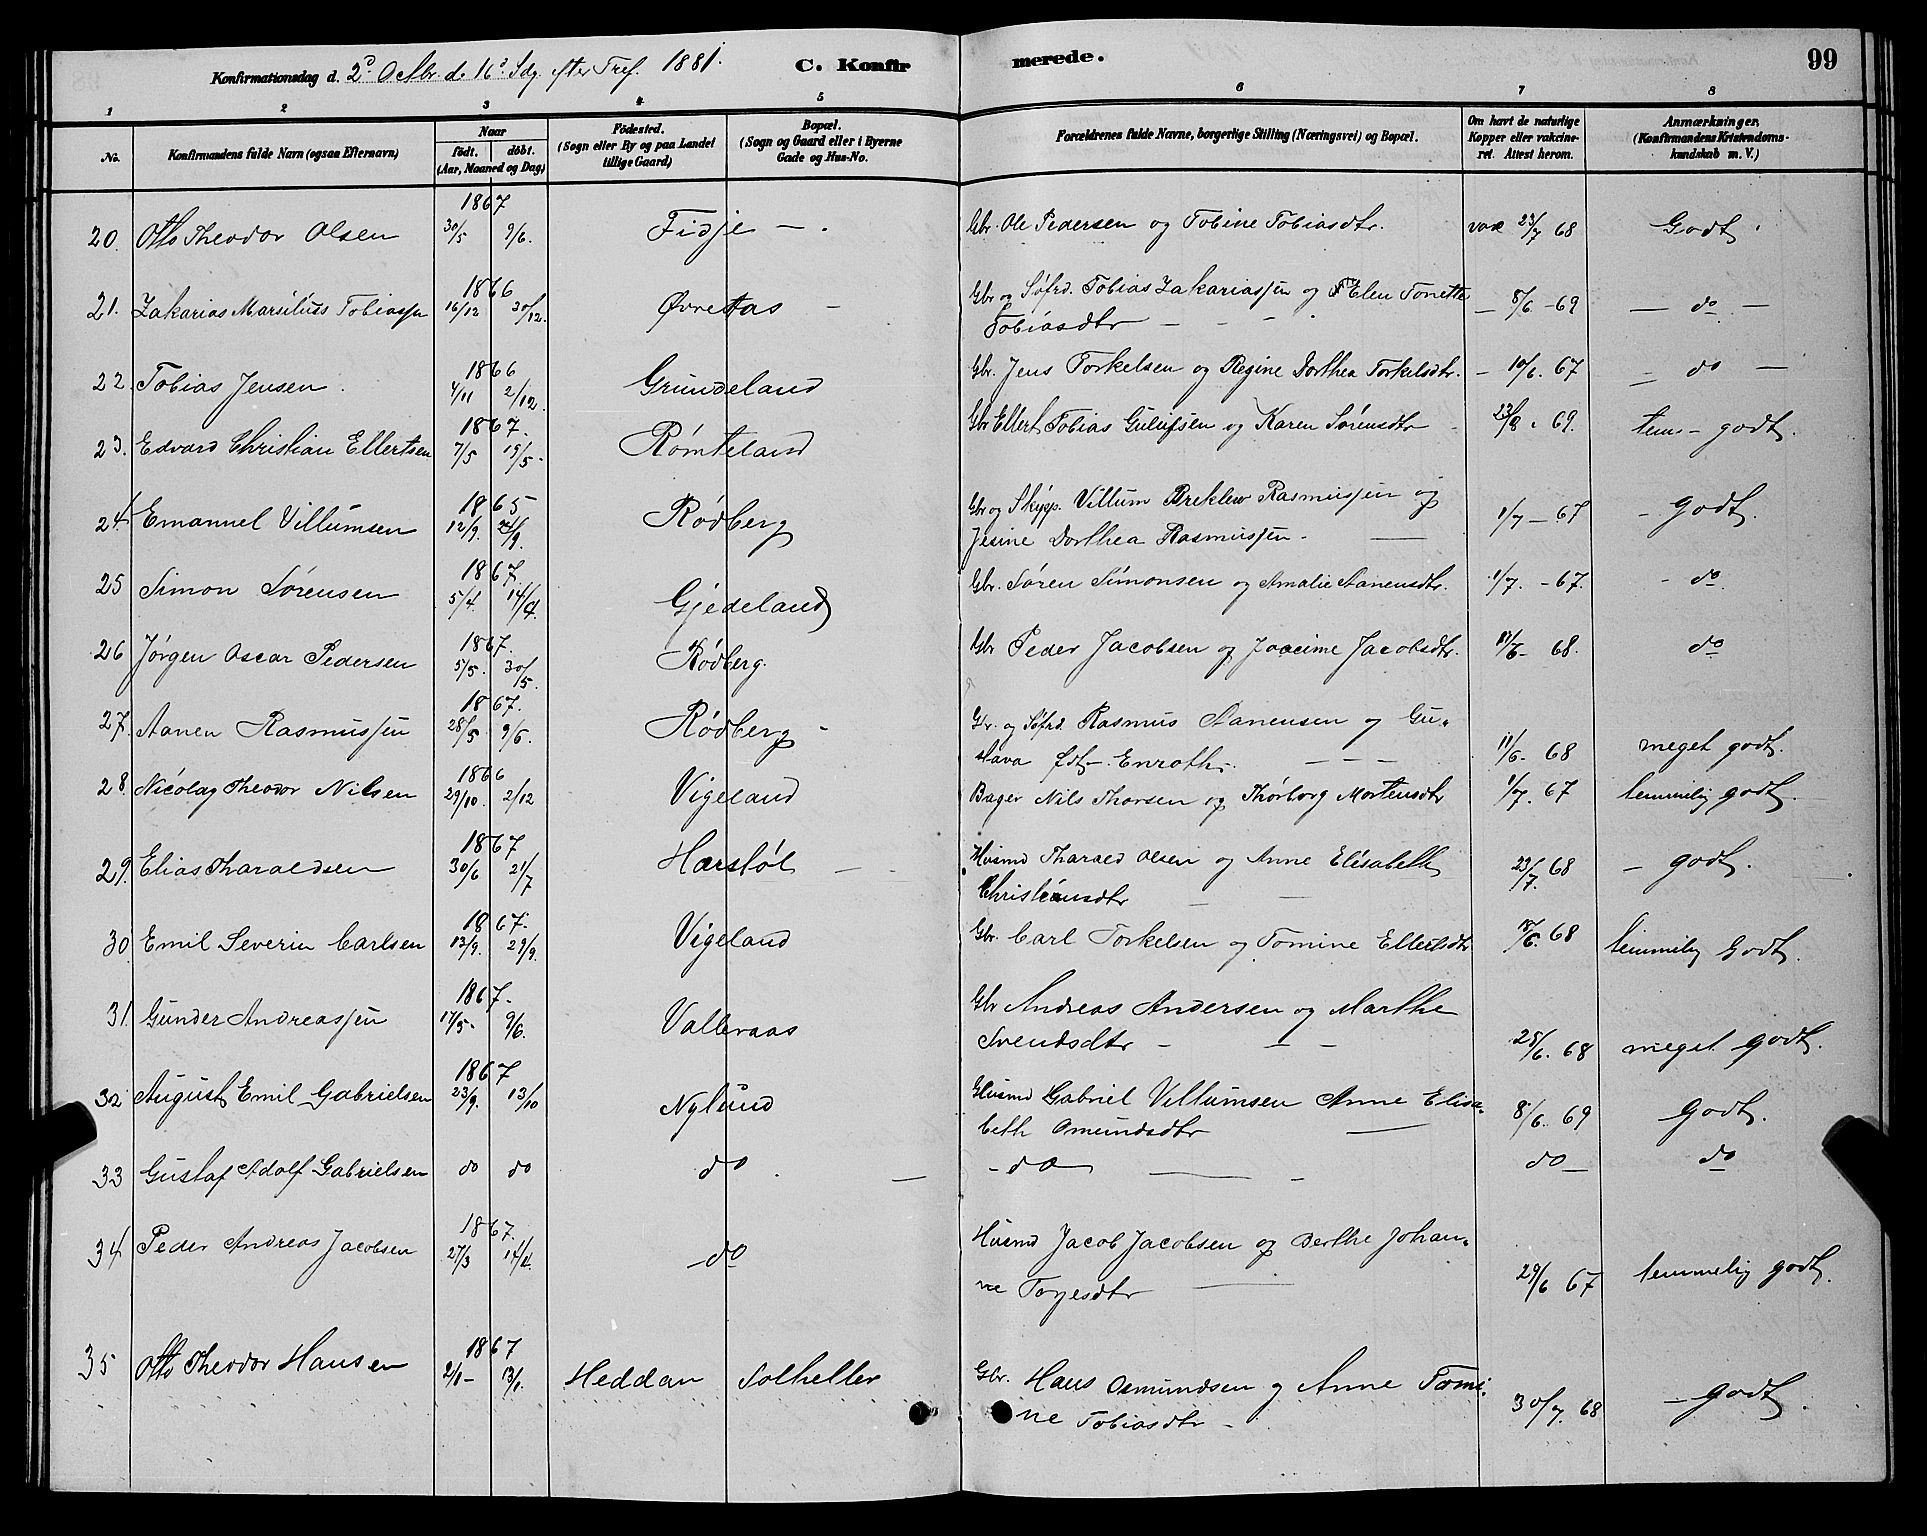 Konfirmationsdag d. 2den Octbr. d. 16de Sdg. efter Tref. 1881. C. Konfirmerede. 99
1 2 3 4 5 6 7 8
No. Konfirmandens fulde Navn (ogsaa Efternavn) Naar født. døbt. (Aar, Maaned og Dag) Fødested. (Sogn eller By og paa Landet tillige Gaard) Bopæl. (Sogn og Gaard eller i Byerne Gade og Hus-No. Forældrenes fulde Navne, borgerlige Stilling (Næringsvei) og Bopæl. Om havt de naturlige Kopper eller vakcineret. Attest herom. Anmærkninger. (Konfirmandens Kristendomskundskab m. V.)
1867
20. Otto Theodor Olsen 30/5 9/6. Fidje - . Gbr. Ole Pedersen og Tobine Tobiasdtr. vax 23/7 68 Godt.
1866
21. Zakarias Marsilius Tobiassen 16/12 30/12. Øvretas - Gbr og Søfrd. Tobias Zakariassen og Elen Tonette
Tobiasdtr - 8/6 - 69 - do -
1866
22. Tobias Jensen. 4/11 2/12. Grundeland Gbr. Jens Torkelsen og Regine Dorthea Torkelsdtr. - 10/6. 67 - do -
1867.
23. Edvard Christian Ellertsen 7/5 19/5. Rømteland Gbr Ellert Tobias Gulufsen og Karen Sørensdtr 23/8. 69. tem - godt.
1865
24. Emanuel Villumsen 12/9. 24/9. Rødberg Gbr og Skipp. Villum Breklew Rasmussen og
Jesine Dorthea Rasmussen - 1/7 - 67 - Godt.
1867.
25 Simon Sørensen 5/4. 14/4. Gjedeland Gbr. Søren Simonsen og Amalie Aanensdtr. 1/7. - 67. - do
1867.
26 Jørgen Oscar Pedersen 5/5. 30/5. Rødberg. Gbr Peder Jacobsen og Joacime Jacobsdtr. 11/6 - 68. do
1867.
27. Aanen Rasmussen 28/5 9/6. Rødberg - Gbr. og Søfrd. Rasmus Aanensen og Gu-
stava fdt. Enroth. - - - 11/6. 68 meget godt.
1866
28. Nicolay Theodor Nilsen 29/10. 2/12 Vigeland Bager Nils Thorsen og Thorborg Mortensdtr 1/7. 67 temmelig godt.
1867
29. Elias Tharaldsen 30/6 21/7 Harstøl - - Husmd Tharald Olsen og Anne Elisabeth
Christensdtr - - 23/7. 68 - godt.
1867.
30. Emil Severin Carlsen 13/9. 29/9. Vigeland Gbr. Carl Torkelsen og Tomine Ellertsdtr 68 temmelig Godt.
1867.
31. Gunder Andreassen 17/5 - 9/6. Valleraas Gbr Andreas Andersen og Marthe
Svendsdtr - - - 28/6. 68 meget godt.
1867
32 August Emil Gabrielsen 23/9. 13/10 Nylund Husmd Gabriel Villumsen Anne Elisa-
beth Omundsdtr - 8/6. 69 Godt.
33 Gustaf Adolf Gabrielsen do do do . - - do - - - do - do
1867.
34 Peder Andreas Jacobsen 27/3 14/4. - do Husmd Jacob Jacobsen og Berthe Johan-
ne Torjesdtr - 29/6 67 temmelig godt.
1867
35 Otto Theodor Hansen 2/1 - 13/1. Heddan Solheller Gbr. Hans Osmundsen og Anne Tomi-
ne Tobiasdtr - 30/7. 68 - godt.